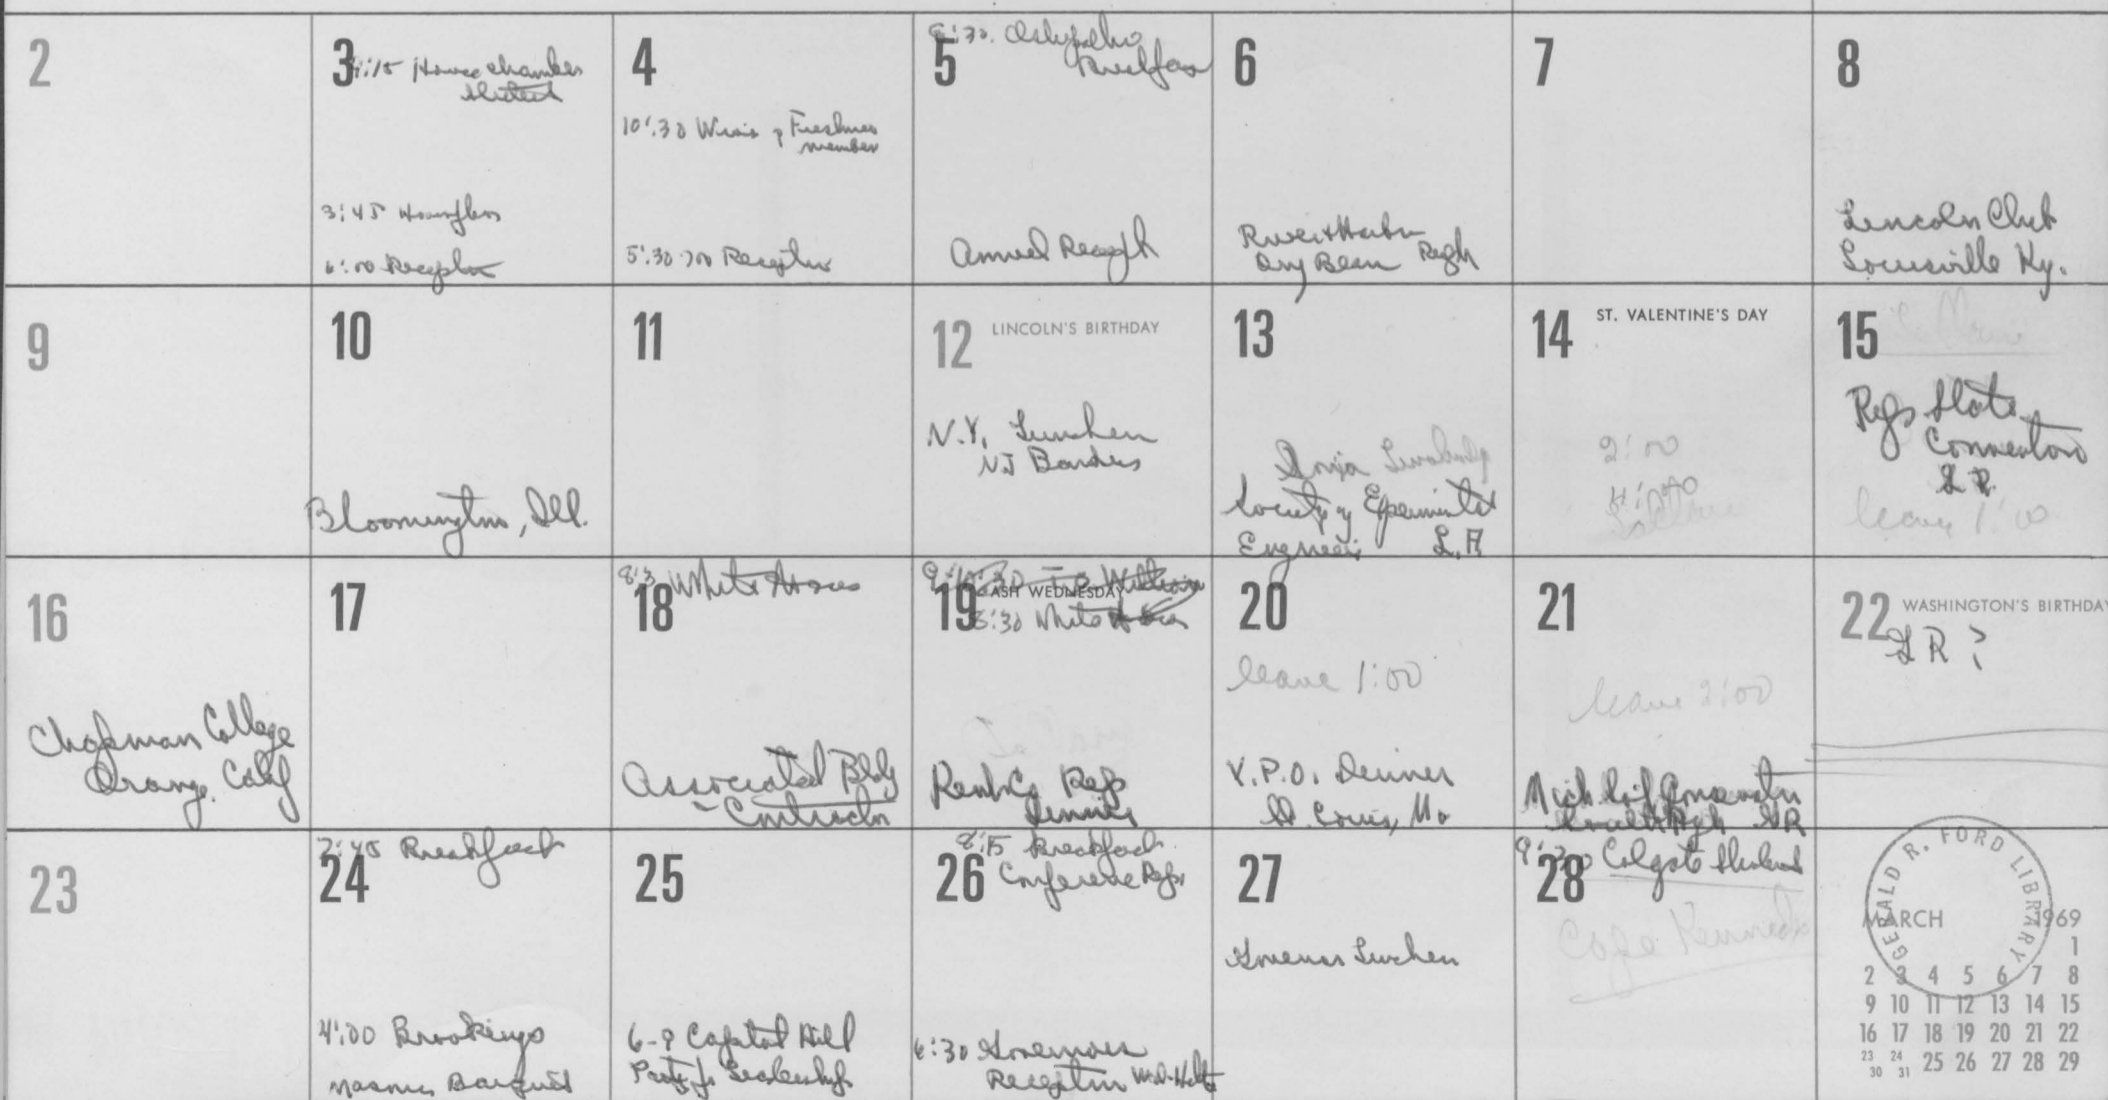 2
3
House chamber
3:45
6:00 Reception
4
10:30 Wives of Freshmen
members
5:30-7:00 Reception
5
8:30
Breakfast
Annual
6
River & Harbor
7
8
Lincoln Club
Louisville Ky.
9
10
Bloomington, Ill.
11
12 LINCOLN'S BIRTHDAY
N.Y. Luncheon
NJ Bankers
13
Society of Experimental
Engineers L.A.
14 ST. VALENTINE'S DAY
2:00
4:00
15
Reps State
Convention
G.R.
leave 1:00
16
Chapman College
Orange, Calif
17
8:30 White House
18
Associated Bldg
- Contractors
19 ASH WEDNESDAY
8:30 White House
Kent Co Rep
Dinner
20
leave 1:00
Y.P.O. Dinner
St. Louis, Mo
21
leave 2:00
Mich
GR
22 WASHINGTON'S BIRTHDAY
GR ?
23
7:45 Breakfast
24
4:00 Brookings
Masonic Banquet
25
6-8 Capitol Hill
Party for Leadership
8:15 Breakfast
26 Conference Reps.
6:30 Governors
Reception
27
Governors Luncheon
9:30 Colgate Students
28
Cape Kennedy
GERALD R. FORD LIBRARY
MARCH 1969
1
2 3 4 5 6 7 8
9 10 11 12 13 14 15
16 17 18 19 20 21 22
23 24 25 26 27 28 29
30 31